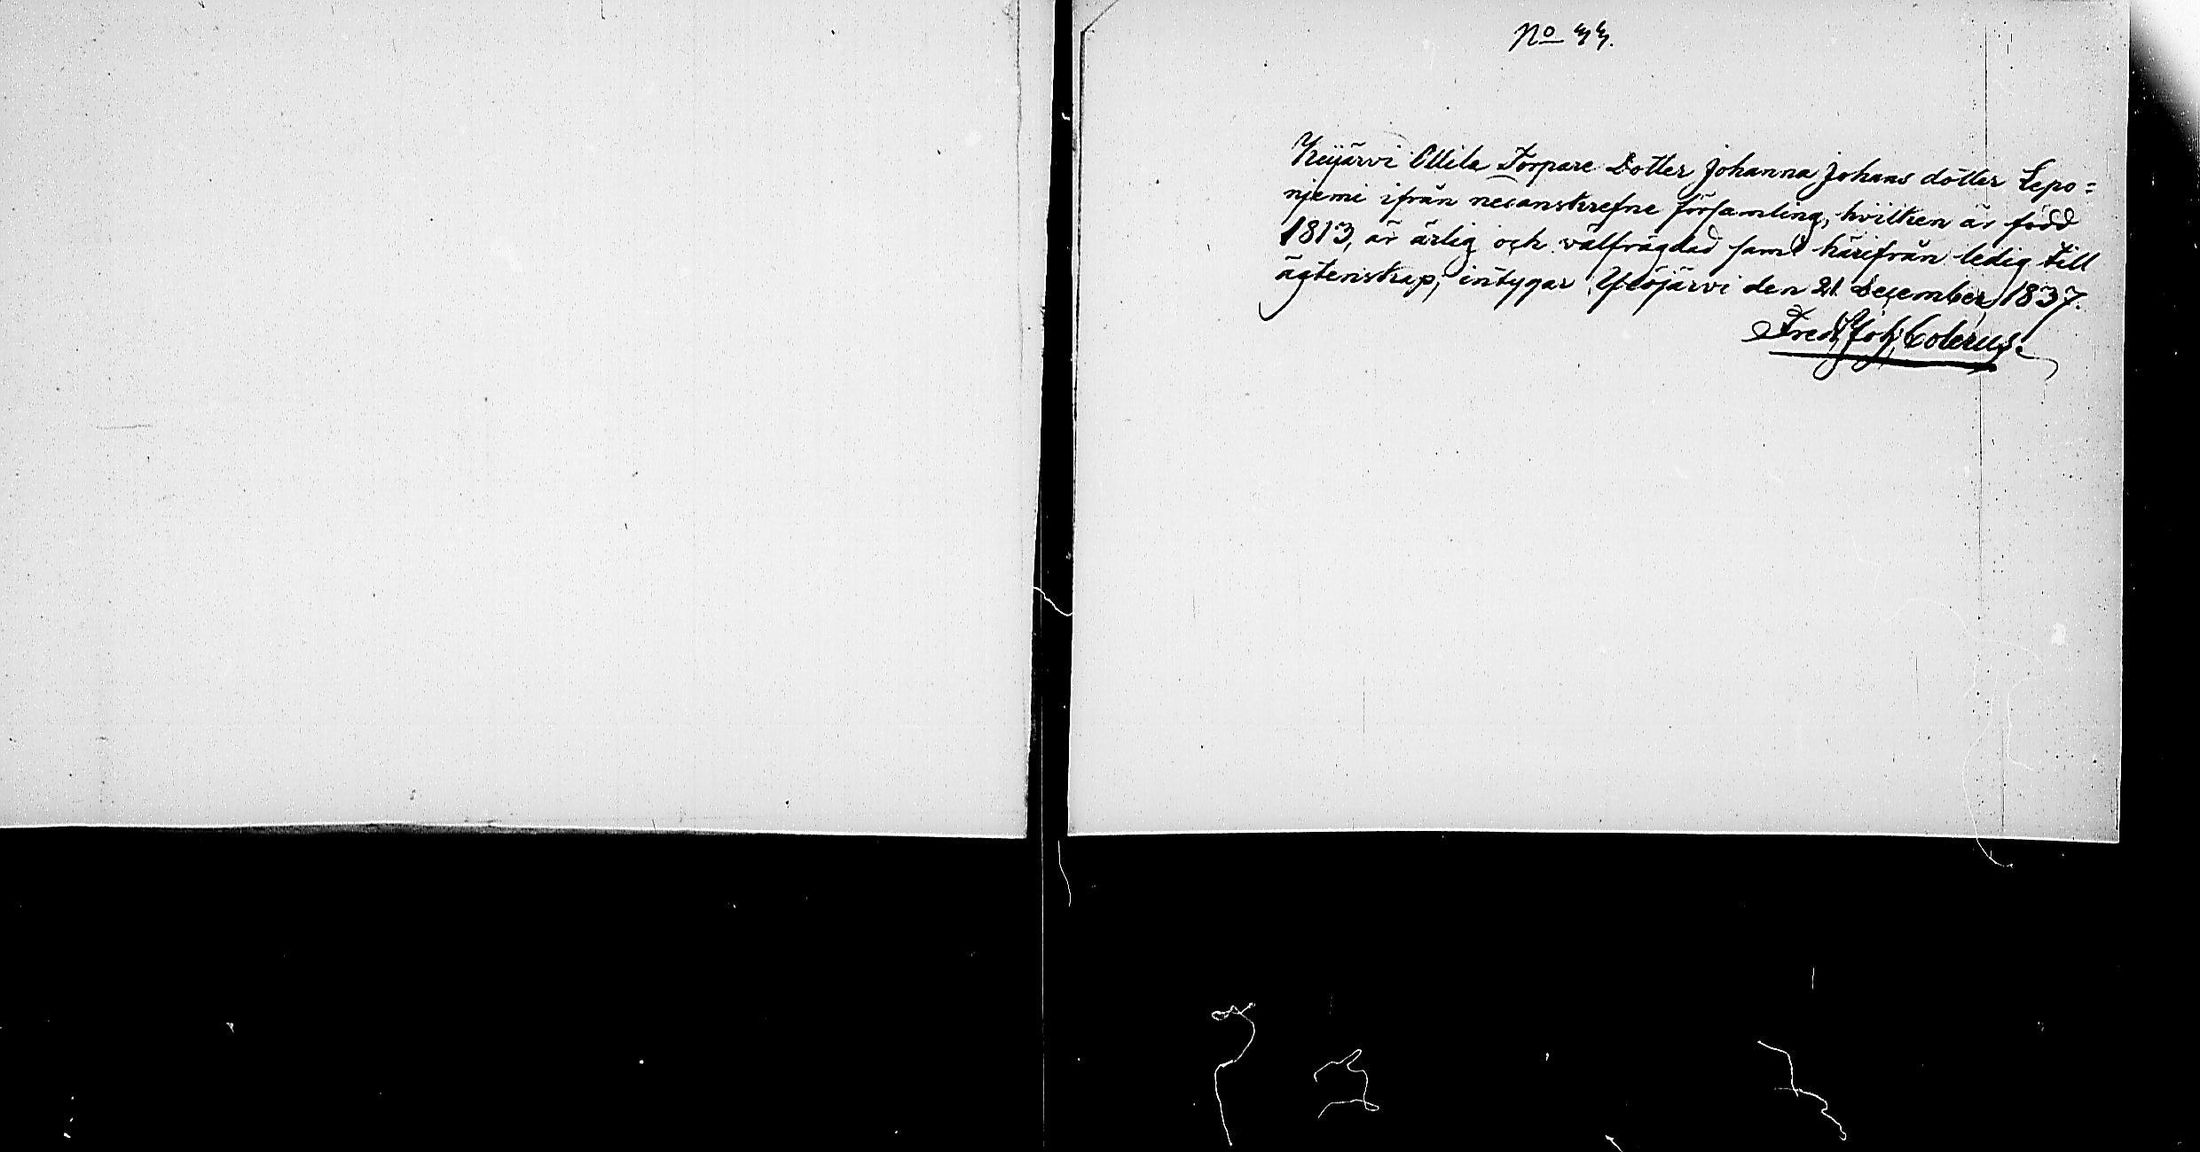 No 44.
Keijärvi Ollila Torpare Dotter Johanna Johans dotter Lepo=
njemi ifrån nedanskrefne församling, hvilken är född
1813, är ärlig och välfrägdad samt härifrån ledig till
ägtenskap; intygar Ylöjärvi den 21 December 1837.
Fredr Joh Colerus.